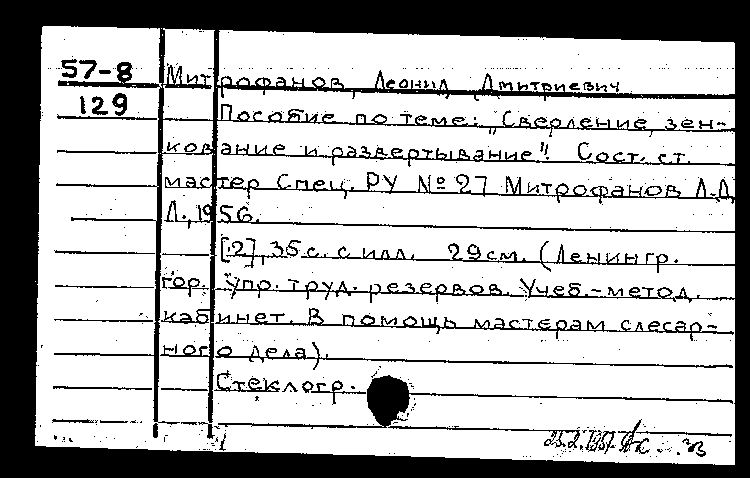 57-8
129
Митрофанов, Леонид Дмитриевич
Пособие по теме: „Сверление, зен-
кование и развертывание". Сост. ст.
мастер Спец. РУ № 27 Митрофанов Л.Д.
Л., 1956.
[2], 35 с. с илл. 29 см. (Ленингр.
гор. упр. труд. резервов. Учеб.-метод.
кабинет. В помощь мастерам слесар-
ного дела).
Стеклогр.